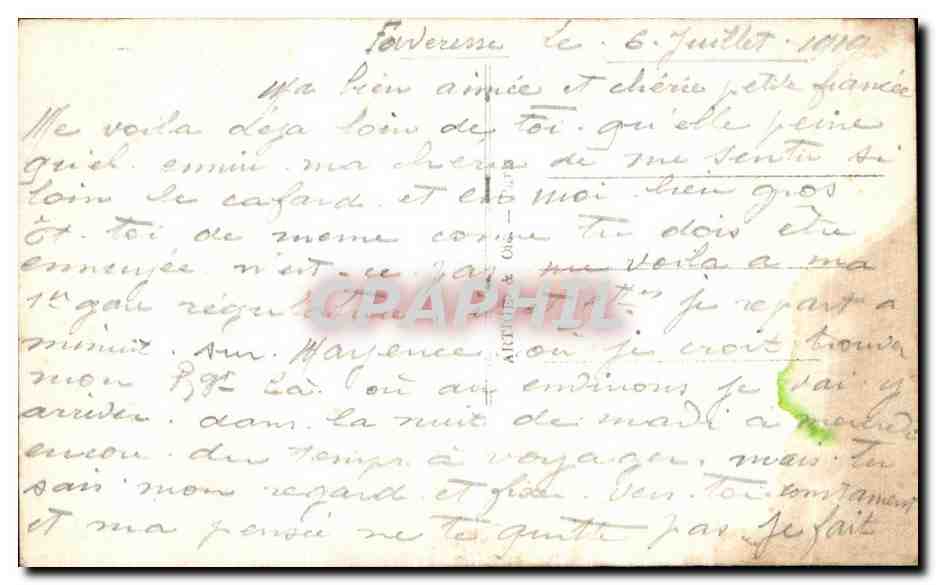 Faveresse Le 6 Juillet 1919
Ma bien aimée et chérie petite fiancée
Me voila déja loin de Toi. qu'elle peine
quel ennui ma chérie de me sentir si
loin le cafard et en moi bien gros.
Et toi de meme comme tu dois être
ennuyée n'est-ce pas me voila a ma
1er gare régulatrice je repart a
minuit. sur Mayence où je croit trouver
mon Rgt Là. où au environs je vai y
arriver dans la nuit de mardi a mercredi
encor du temps à voyager. mais tu
sais mon regard et fixer vers toi constament
et ma pensée ne te quitte pas Je fait
CPARPHIL
ARTIGE &